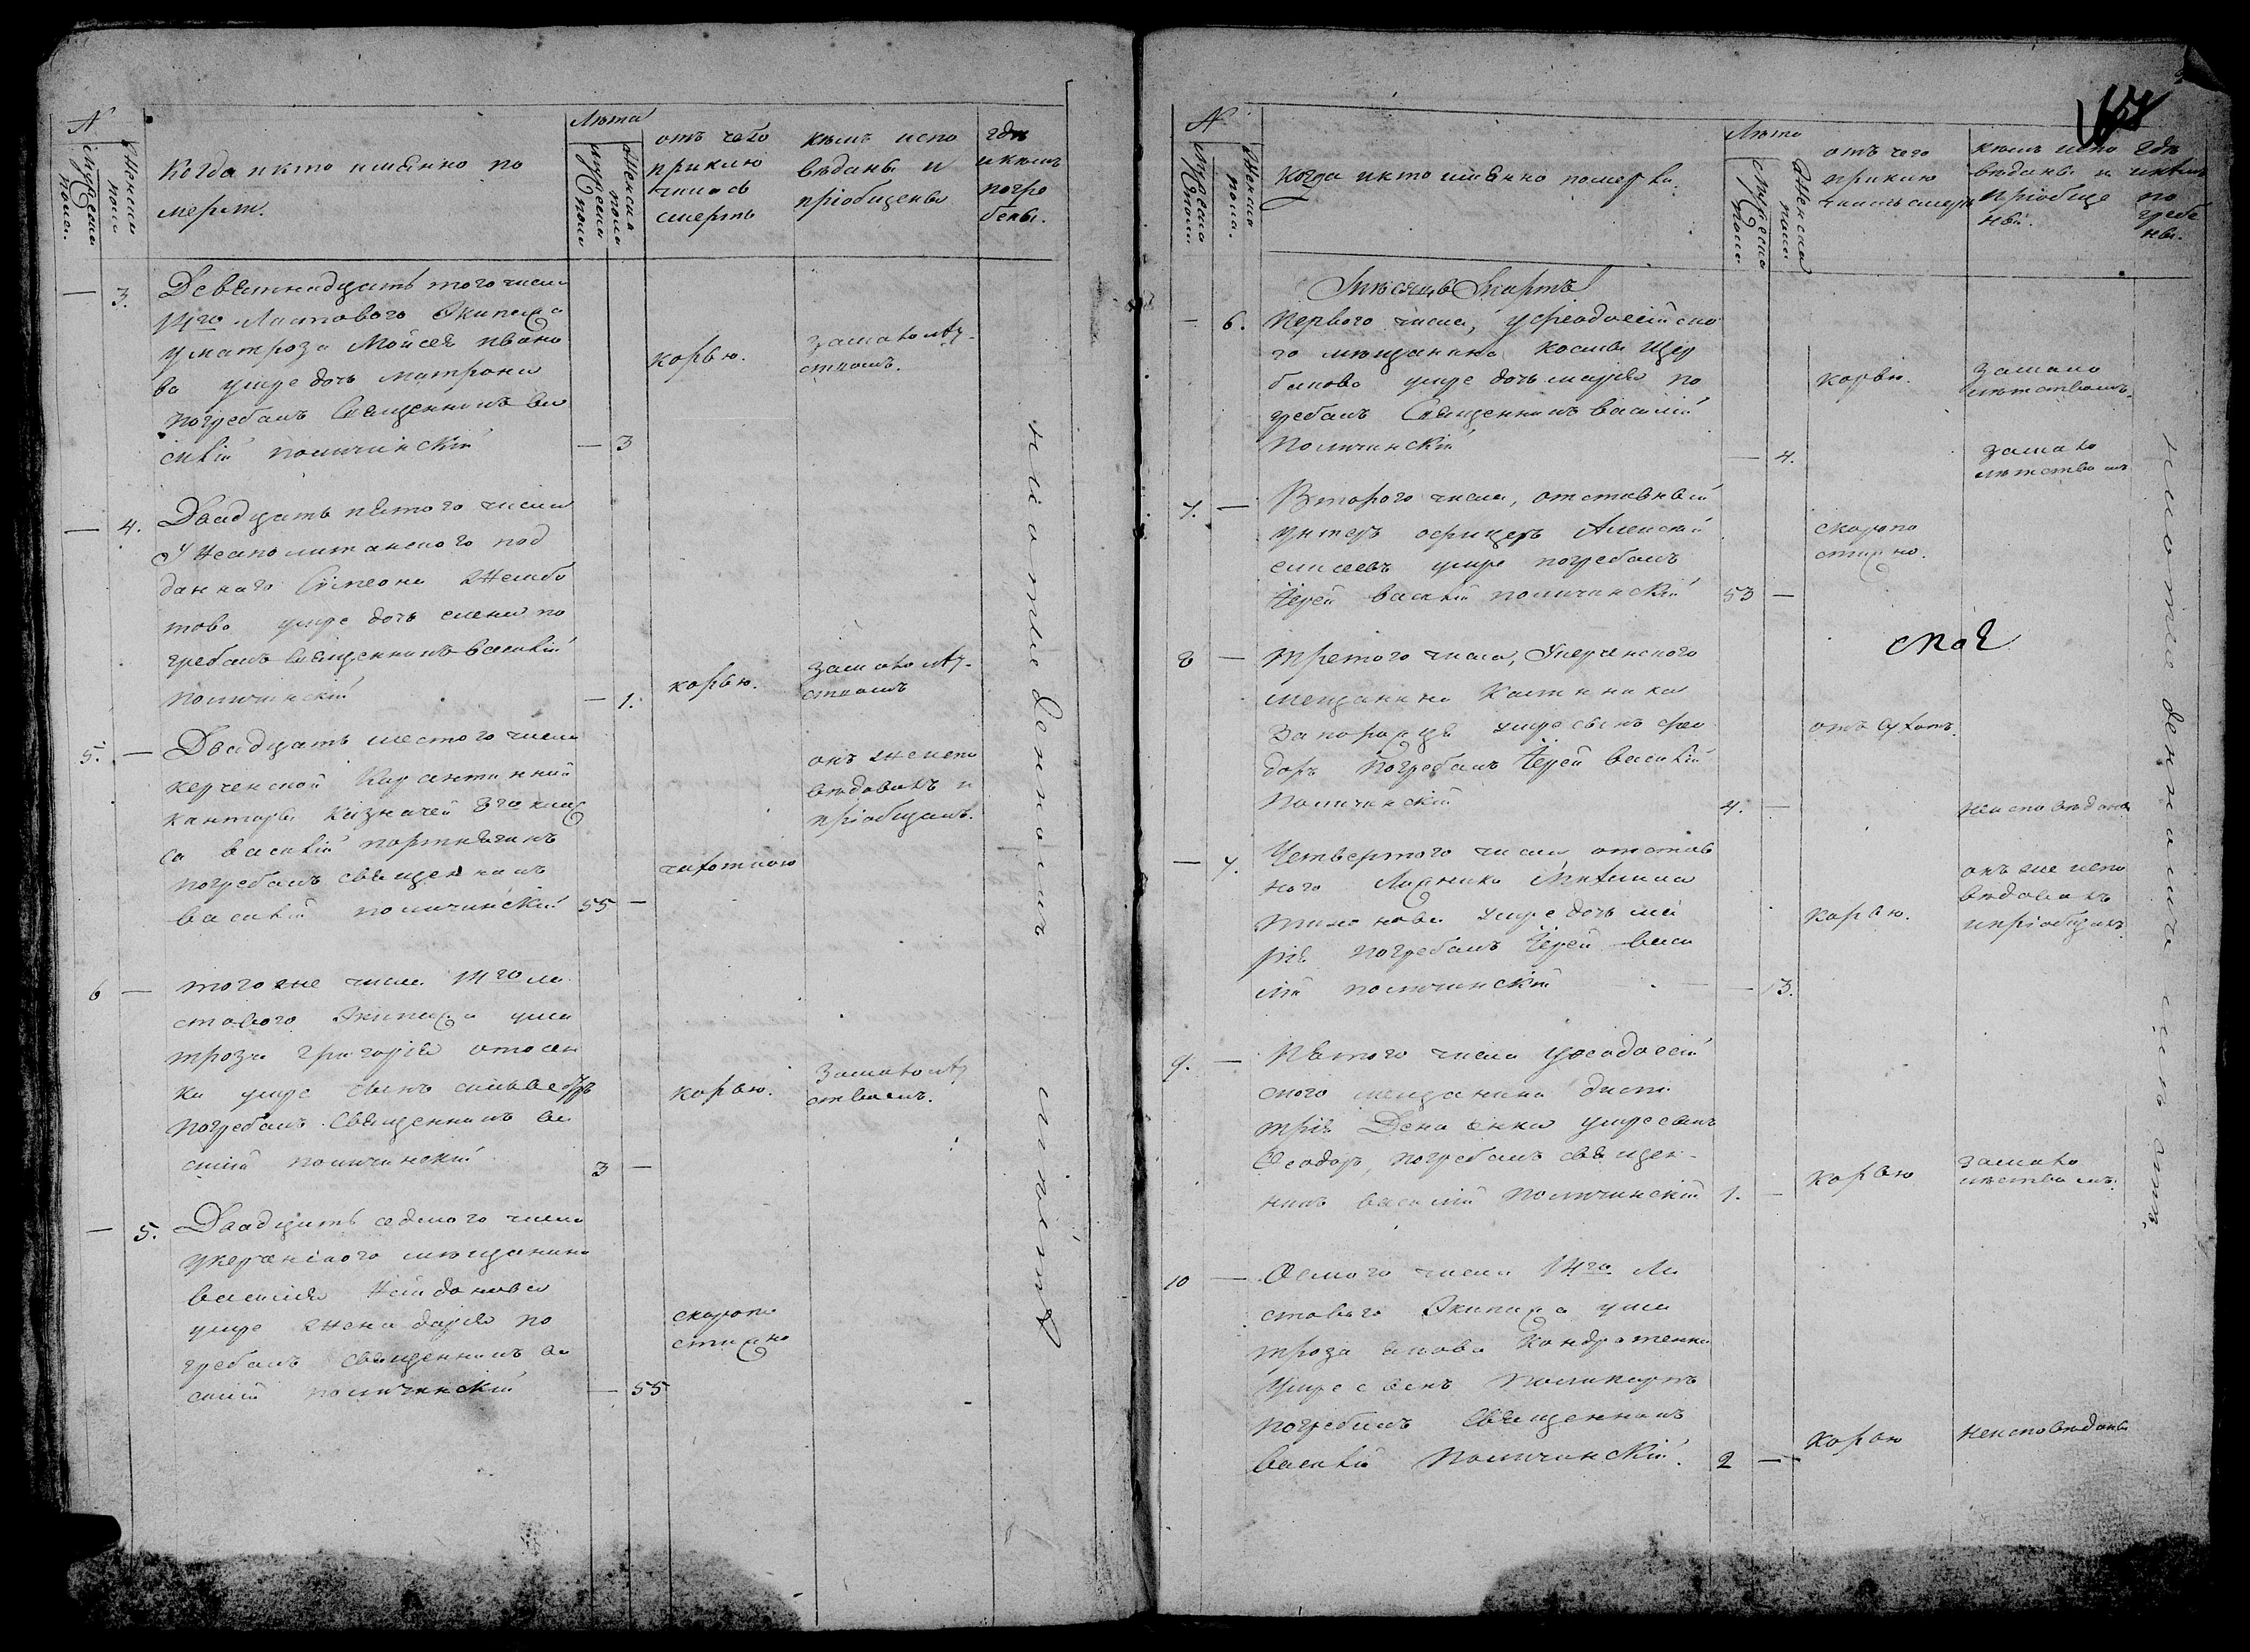 N
Мужеска пола.
Женска пола
Когда и кто именно по
меръ.
Лѣта
Мужеска пола
Женска пола
отъ чего
приклю
чилась
смерть
кѣмъ испо
вѣданы и
пріобщены
гдѣ
и кѣмъ
погре
бены.
— 3.
Девятнадцать того числа
14го Ластового Экипажа
у матроза Мойсея Ивано
ва умре дочь Матрона
погребалъ Священникъ Ва
силій Поличинскій
— 3
корью.
замалолѣт-
ствомъ.
— 4.
Двадцать пятого числа
У Неаполитанского под
даннаго Симеона Жембо
това умре дочь Елена по
гребалъ Священникъ Василій
Поличинскій
— 1.
корью.
замалолѣт-
ствомъ
5. —
Двадцать шестого числа
Керченской Карантинной
Канторы Казначей 8го клас
са Василій Портнягинъ
погребалъ Священникъ
Василій Поличинскій
55 —
чахоткою
онъ же испо
вѣдовалъ и
пріобщалъ.
6 —
того же числа 14го ла
стового Экипажа у ма
троза Григорія
ка умре сынъ
погребалъ Священникъ Ва
силій Поличинскій
3 —
корью.
Замалолѣт
ствомъ.
— 5.
Двадцать седмого числа
у керченского мѣщанина
Василія Найданова
умре жена Дарія по
гребалъ Священникъ Ва
силій Поличинскій
— 55
скоропо
стижно
N
Мужеска пола
Женска пола.
Когда и кто именно померли.
Лѣта
Мужеска пола
Женска пола
отъ чего
приклю
чилась смерть
кѣмъ испо
вѣданы и
пріобще
ны.
гдѣ
и кѣмъ
по
гребе
ны.
Мѣсяцъ Мартъ
— 6.
Первого числа, у Феодосійско
го мѣщанина Космы Щер
бакова умре дочь Марія по
гребалъ Священникъ Василій
Поличинскій
— 4.
корью.
замало
лѣтствомъ.
замало
лѣтствомъ
7. —
Второго числа, отставный
унтеръ офицеръ Алексѣй
Елисеевъ умре погребалъ
Іерей Василій Поличинскій
53 —
скоропо
стижно.
8 —
Третого числа, У керченского
мещанина Калиника
Запорожця умре сынъ Фео
доръ погребалъ Іерей Василій
Поличинскій
4. —
неисповѣданъ
— 7.
Четвертого числа отстав
ного Михаила
умре дочь Ма
рія погребалъ Іерей Васи
лій Поличинскій
— 3.
корью.
онъ же испо
вѣдовалъ
и пріобщалъ
9. —
Пятого числа у Феодосій
ского мещанина Дими
трія умре сынъ
Феодоръ, погребалъ священ-
никъ Василій Поличинскій
1. —
корью
замало
лѣтствомъ.
10 —
Осмого числа 14го Ла
стового Экипажа у ма
троза Якова Кондратенка
Умре сынъ Поликарпъ
погребалъ Священникъ
Василій Поличинскій.
2 —
корью
неисповѣданъ